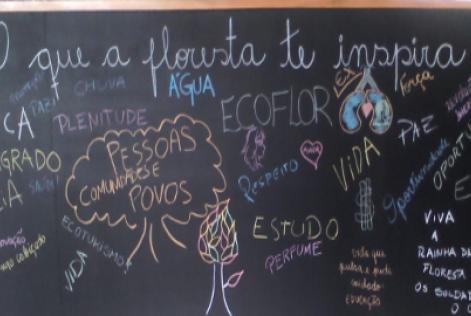 O que a floresta te inspira
CHUVA
ÁGUA
ECOFLOR
Força
PAZ
PLENITUDE
PAZ
PESSOAS
COMUNIDADES E
POVOS
AMOR
RESPEITO
VIDA
oportunidade
SAÚDE
ECOTURISMO!
VIDA
ESTUDO
PERFUME
vida que
pulsa e pede
cuidado
EDUCAÇÃO
VIVA
A
RAINHA DA
FLORESTA
E
OS SOLDA